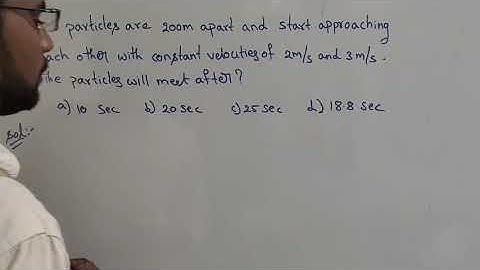 particles are 200m apart and start approaching
each other with constant velocities of 2m/s and 3m/s.
The particles will meet after?
a) 10 sec b) 20 sec c) 25 sec d) 18.8 sec
Sol:-